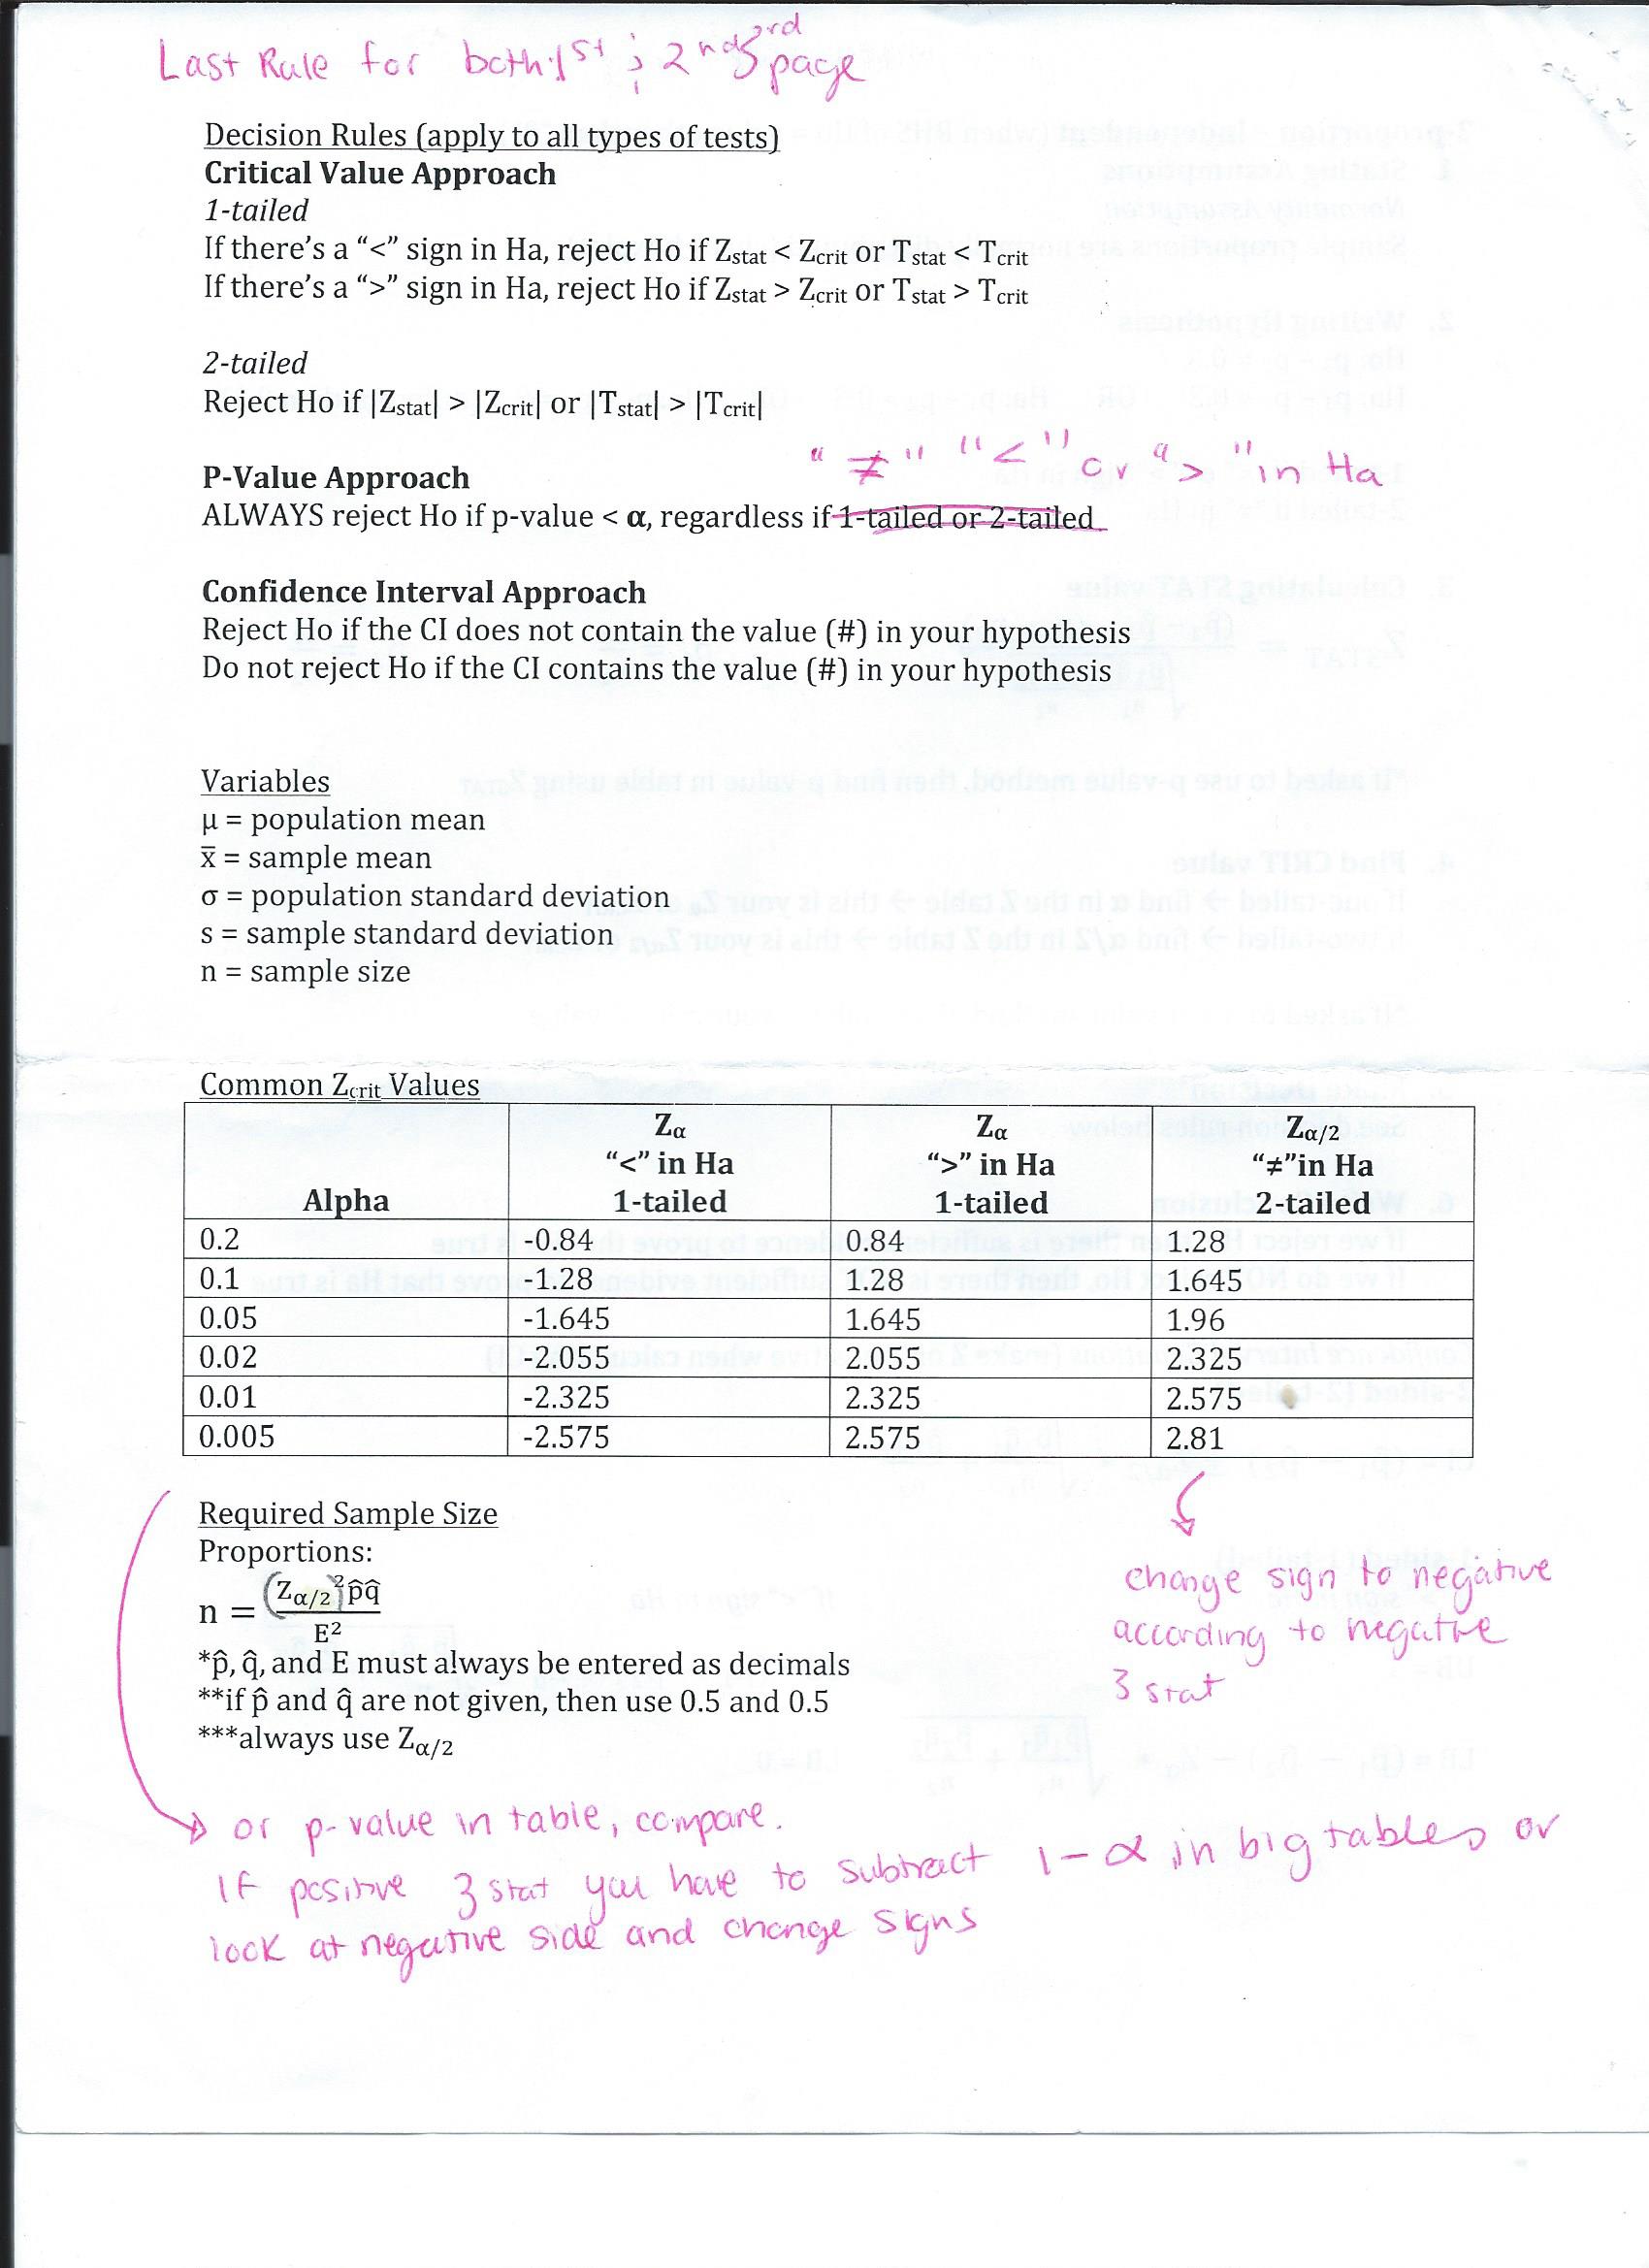 Last Rule for both 1st ; 2nd 3rd page
Decision Rules (apply to all types of tests)
Critical Value Approach
1-tailed
If there's a "<" sign in Ha, reject Ho if Zstat < Zcrit or Tstat < Tcrit
If there's a ">" sign in Ha, reject Ho if Zstat > Zcrit or Tstat > Tcrit
2-tailed
Reject Ho if |Zstat| > |Zcrit| or |Tstat| > |Tcrit|
"≠" "<" or ">" in Ha
P-Value Approach
ALWAYS reject Ho if p-value < α, regardless if 1-tailed or 2-tailed
Confidence Interval Approach
Reject Ho if the CI does not contain the value (#) in your hypothesis
Do not reject Ho if the CI contains the value (#) in your hypothesis
Variables
μ = population mean
x̅ = sample mean
σ = population standard deviation
s = sample standard deviation
n = sample size
Common Zcrit Values
Zα Zα Zα/2
"<" in Ha ">" in Ha "≠"in Ha
Alpha 1-tailed 1-tailed 2-tailed
0.2 -0.84 0.84 1.28
0.1 -1.28 1.28 1.645
0.05 -1.645 1.645 1.96
0.02 -2.055 2.055 2.325
0.01 -2.325 2.325 2.575
0.005 -2.575 2.575 2.81
Required Sample Size
Proportions:
n = (Zα/2)²p̂q̂ / E²
*p̂, q̂, and E must always be entered as decimals
**if p̂ and q̂ are not given, then use 0.5 and 0.5
***always use Zα/2
change sign to negative
according to negative
3 stat
or p-value in table, compare.
If positive 3 stat you have to subtract 1-α in big tables or
look at negative side and change signs